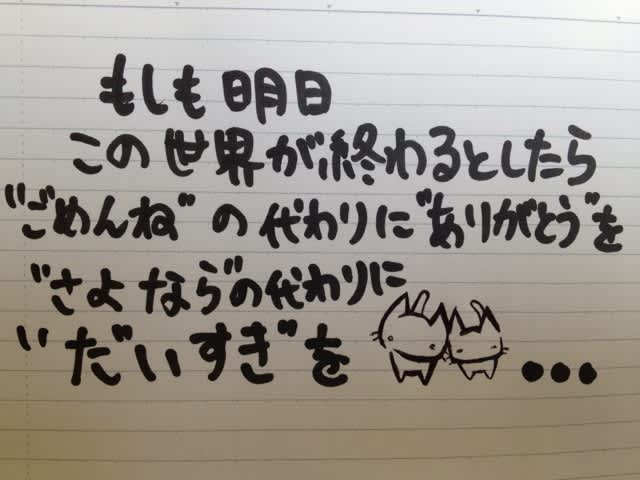 もしも明日
この世界が終わるとしたら
"ごめんね"の代わりに"ありがとう"を
"さよなら"の代わりに
"だいすき"を ...